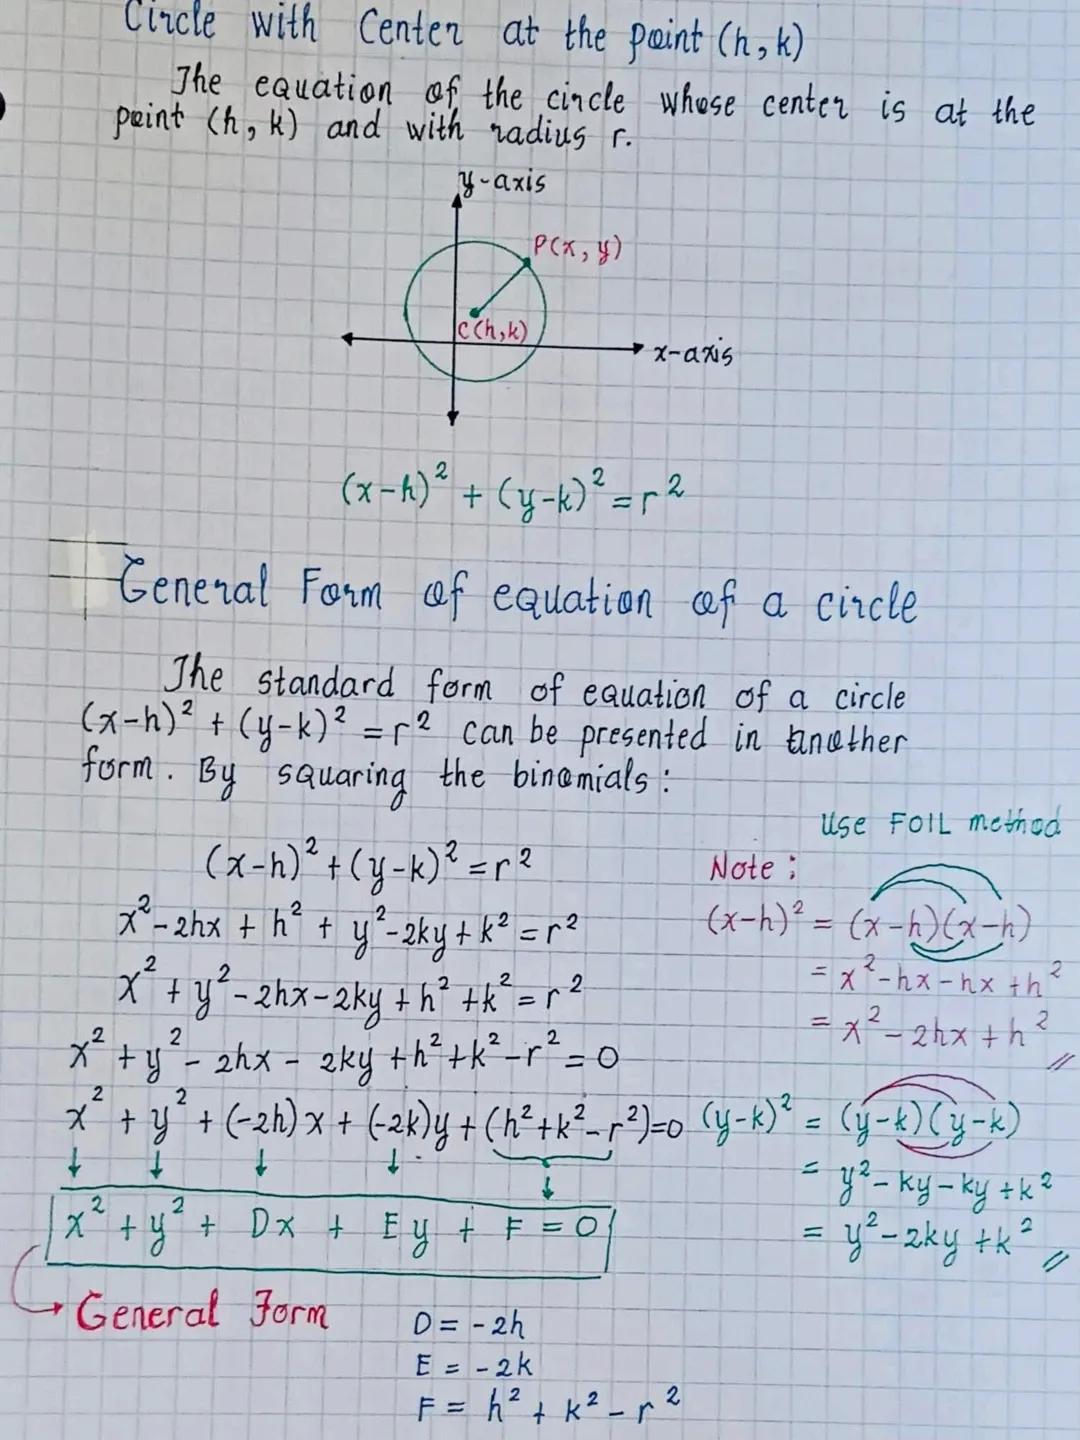 Circle with Center at the point (h, k)
The equation of the circle whose center is at the
point (h, k) and with radius r.
y-axis
P(x, y)
C(h,k)
x-axis
(x-h)² + (y-k)² = r²
General Form of equation of a circle
The standard form of equation of a circle
(x-h)² + (y-k)² = r² can be presented in another
form. By squaring the binomials:
(x-h)² + (y-k)² = r²
x² - 2hx + h² + y² - 2ky + k² = r²
x² + y² - 2hx - 2ky + h² + k² = r²
x² + y² - 2hx - 2ky + h² + k² - r² = 0
x² + y² + (-2h)x + (-2k)y + (h² + k² - r²) = 0
x² + y² + Dx + Ey + F = 0
General Form
D = -2h
E = -2k
F = h² + k² - r²
Use FOIL method
Note:
(x-h)² = (x-h)(x-h)
= x² - hx - hx + h²
= x² - 2hx + h² //
(y-k)² = (y-k)(y-k)
= y² - ky - ky + k²
= y² - 2ky + k² //